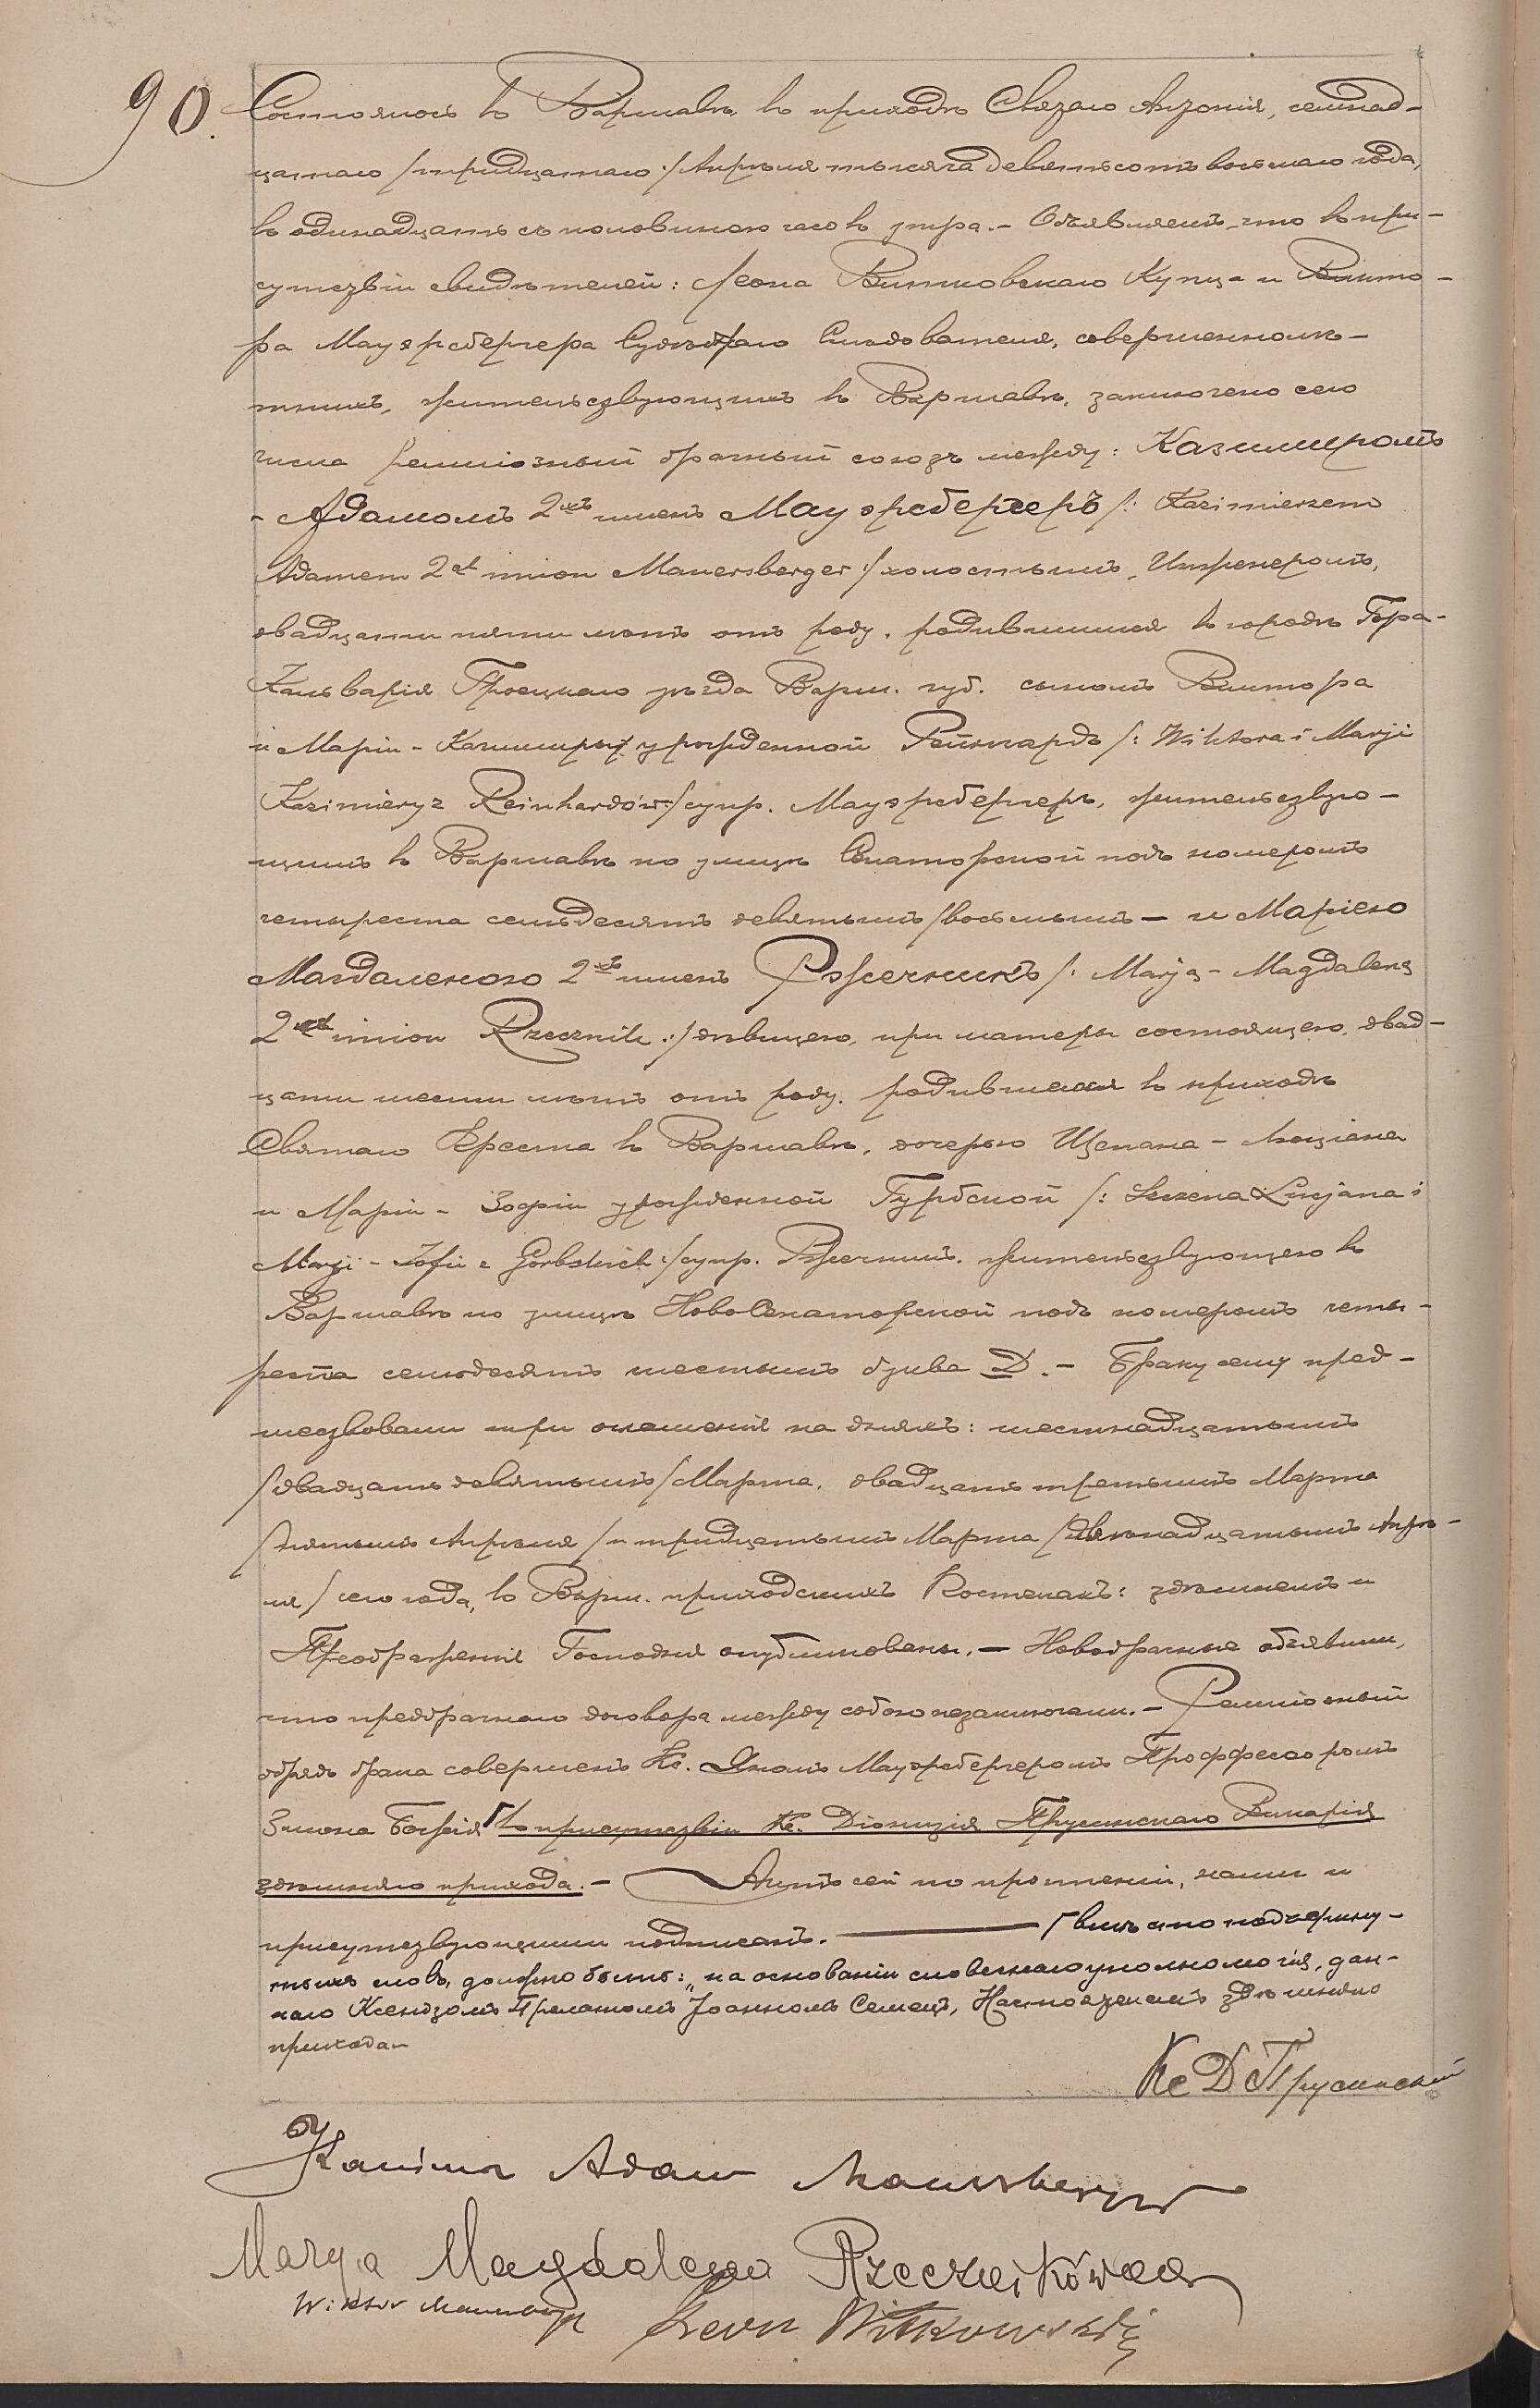 90.
Состоялось въ Варшавѣ, въ приходѣ Святаго Антонія, семнад-
цатаго /тридцатаго:/ Апрѣля тысяча девятьсотъ восьмаго года,
въ одинадцать съ половиною часовъ утра. – Объявляемъ, что въ при-
сутствіи свидѣтелей: Леона Витковскаго Купца и Викто-
ра Мауэрсбергера Судебнаго Слѣдователя, совершеннолѣ-
тнихъ, жительствующихъ въ Варшавѣ, заключено сего
числа религіозный брачный союзъ между: Казимиромъ
- Адамомъ 2хъ именъ Мауэрсбергеръ /: Kazimierzem
Adamem 2ch imion Mauersberger :/ холостымъ, Инженеромъ,
двадцати пяти лѣтъ отъ роду, родившимся въ городѣ Гора-
Кальварія Гроецкаго уѣзда Варш. губ. сыномъ Виктора
и Маріи - Казимиры урожденной Рейнгардъ /: Wiktora i Marji
Kazimiery z Reinhardów :/ супр. Мауэрсбергеръ, жительствую-
щимъ въ Варшавѣ по улицѣ Сенаторской подъ номеромъ
четыреста семьдесятъ девятымъ /восьмымъ – и Маріею
Магдаленою 2хъ именъ Ржечникъ /: Marją - Magdaleną
2ch imion Rzecznik :/ дѣвицею, при матери состоящею, двад-
цати шести лѣтъ отъ роду, родившеюся въ приходѣ
Святаго Креста въ Варшавѣ, дочерью Щепана - Люціана
и Маріи - Зофіи урожденной Гурбской /: Szczepana Lucjana i
Marji - Zofii z Górbskich :/ супр. Ржечникъ, жительствующею въ
Варшавѣ по улицѣ НовоСенаторской подъ номеромъ четы-
реста семьдесятъ шестымъ буква D. – Браку сему пред-
шествовали три оглашенія на дняхъ: шестнадцатымъ
/двадцать девятымъ/ Марта, двадцать третьимъ Марта
/пятымъ Апрѣля/ и тридцатымъ Марта /двѣнадцатымъ Апрѣ-
ля/ сего года, въ Варш. приходскихъ Костелахъ: здѣшнемъ и
Преображенія Господня опубликованы. – Новобрачные объявили,
что предбрачнаго договора между собою незаключали. – Религіозный
обрядъ брака совершенъ Кс. Яномъ Мауэрсбергеромъ Проффесоромъ
Закона Божія въ присутствіи Кс. Діонизія Прусинскаго Викарія
здѣшняго прихода. – Актъ сей по прочтеніи, нами и
присутствующими подписанъ. ——— Вмѣсто подчеркну-
тыхъ словъ, должно быть: „на основаніи словеснаго уполномочія, дан-
наго Ксендзомъ Прелатомъ Іоанномъ Семецъ, Настоятелемъ здѣшняго
прихода"
Кс Д Прусинскій
Kazimierz Adam Mauersberger
Marya Magdalena Rzecznikówna
Wiktor Mauersberger Leon Witkowski